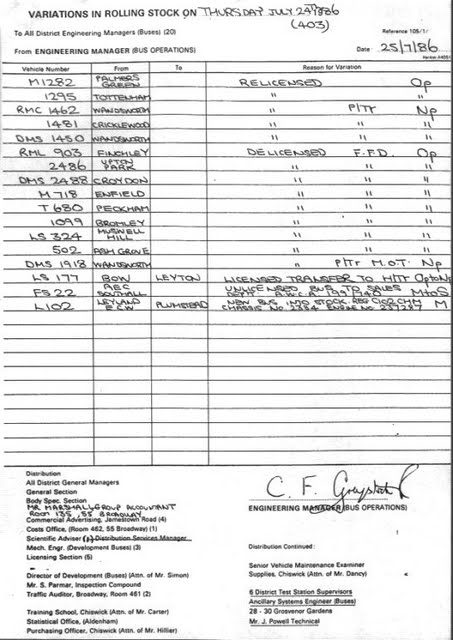 VARIATIONS IN ROLLING STOCK ON THURSDAY JULY 24TH 1986
(403)
To All District Engineering Managers (Buses) (20)
Reference 105/1/
From ENGINEERING MANAGER (BUS OPERATIONS)
Date 25/7/86
Vehicle Number From To Reason for Variation
M1282 PALMERS GREEN RELICENSED Op
1295 TOTTENHAM " "
RMC 1462 WANDSWORTH " PITT Np
1481 CRICKLEWOOD " " "
DMS 1450 WANDSWORTH " " "
RML 903 FINCHLEY DELICENSED F.F.D. Op
2486 UPTON PARK " " "
DMS 2488 CROYDON " " "
M 718 ENFIELD " " "
T 680 PECKHAM " " "
1099 BROMLEY " " "
LS 324 MUSWELL HILL " " "
502 ASH GROVE " " "
DMS 1918 WANDSWORTH " PITT M.O.T. Np
LS 177 BOW LEYTON LICENSED TRANSFER TO HITT Op to Np
FS22 AEC SOUTHALL UNLICENSED BUS TO SALES
DEPT. A.W.C.A. M to S
L102 LEYLAND E.C.W PLUMSTEAD NEW BUS INTO STOCK. REG C102 CHM M
CHASSIS NO. 2354 ENGINE NO.
Distribution
All District General Managers
General Section
Body Spec. Section
MR MARSHALL GROUP ACCOUNTANT
ROOM 135, 55 BROADWAY
Commercial Advertising, Jamestown Road (4)
Costs Office, (Room 462, 55 Broadway) (1)
Scientific Adviser (1) Distribution Services Manager
Mech. Engr. (Development Buses) (3)
Licensing Section (5)
Director of Development (Buses) (Attn. of Mr. Simon)
Mr. S. Parmar, Inspection Compound
Traffic Auditor, Broadway, Room 461 (2)
Training School, Chiswick (Attn. of Mr. Carter)
Statistical Office, (Aldenham)
Purchasing Officer, Chiswick (Attn. of Mr. Hillier)
C. F.
ENGINEERING MANAGER (BUS OPERATIONS)
Distribution Continued:
Senior Vehicle Maintenance Examiner
Supplies, Chiswick (Attn. of Mr. Dancy)
6 District Test Station Supervisors
Ancillary Systems Engineer (Buses)
28 - 30 Grosvenor Gardens
Mr. J. Powell Technical